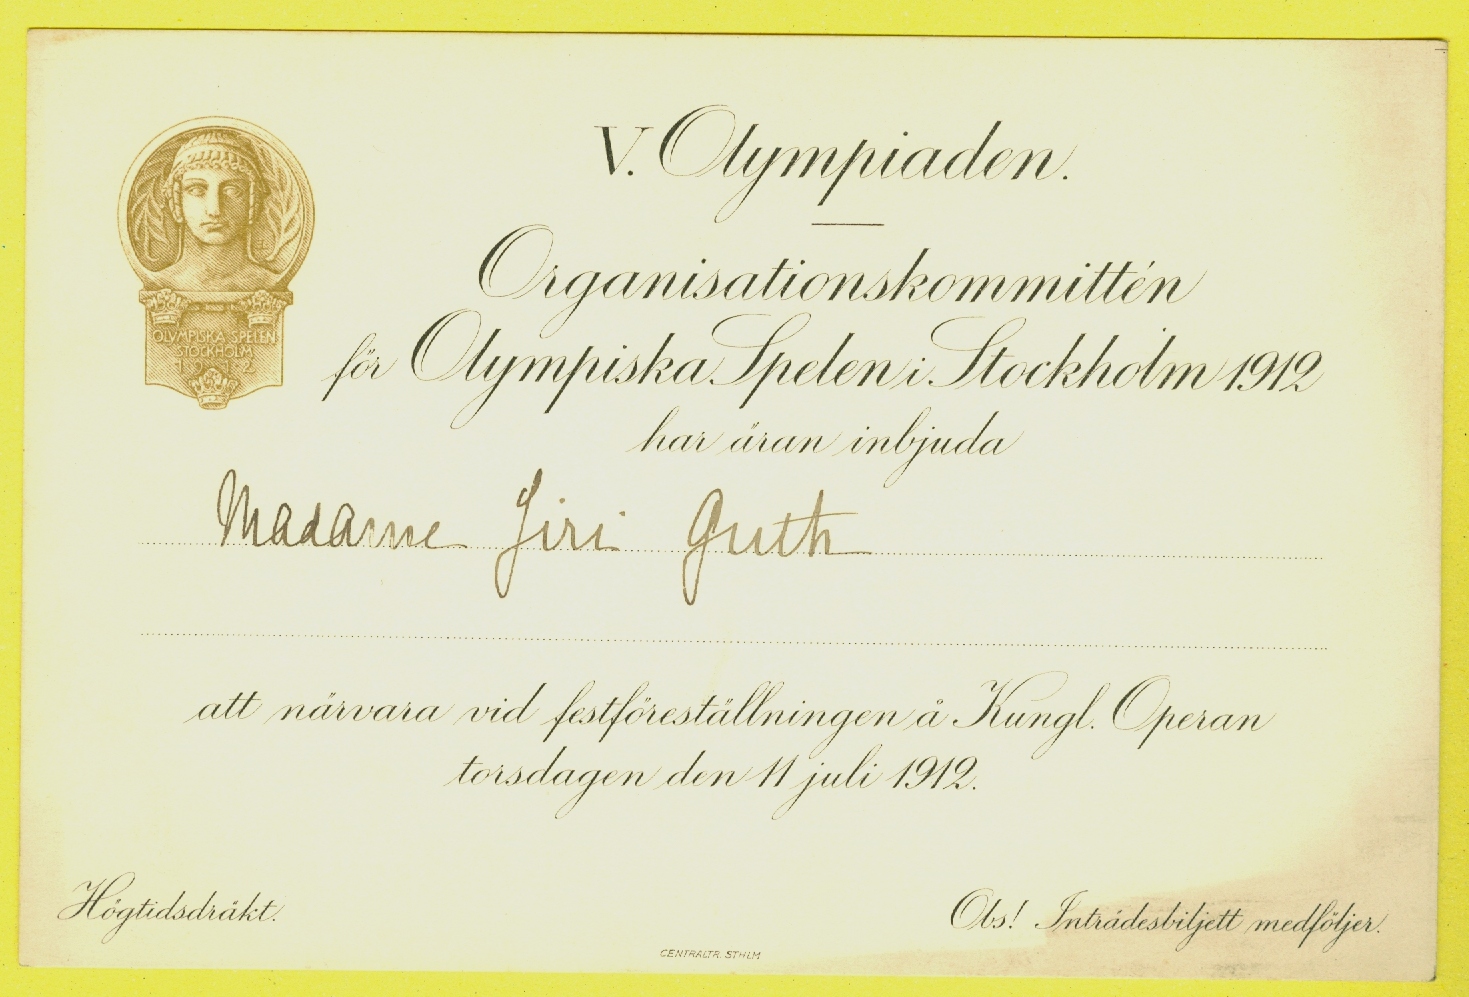 V. Olympiaden.
Organisationskommittén
för Olympiska Spelen i Stockholm 1912
har äran inbjuda
Madame Jiri Guth
att närvara vid festföreställningen å Kungl. Operan
torsdagen den 11 juli 1912.
Högtidsdräkt.
Obs! Inträdesbiljett medföljer.
CENTRALTR. STHLM
OLYMPISKA SPELEN
STOCKHOLM
1912